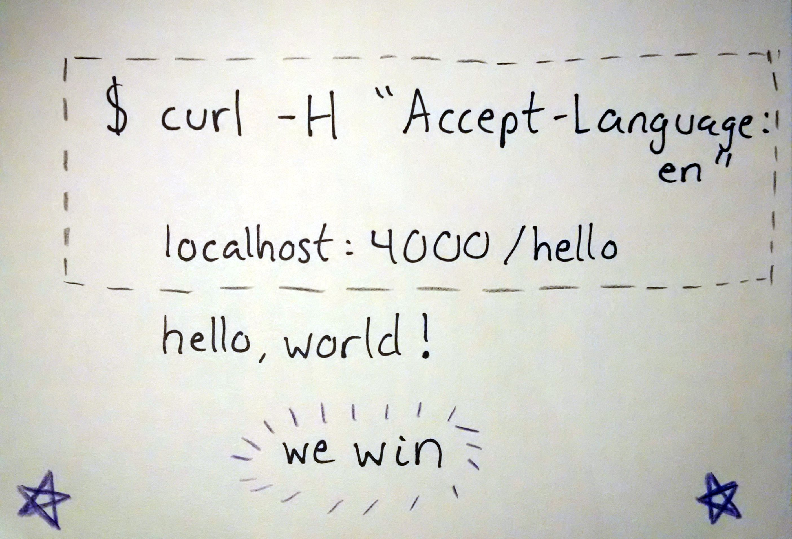 $ curl -H "Accept-Language:
en"
localhost:4000/hello
hello, world!
we win